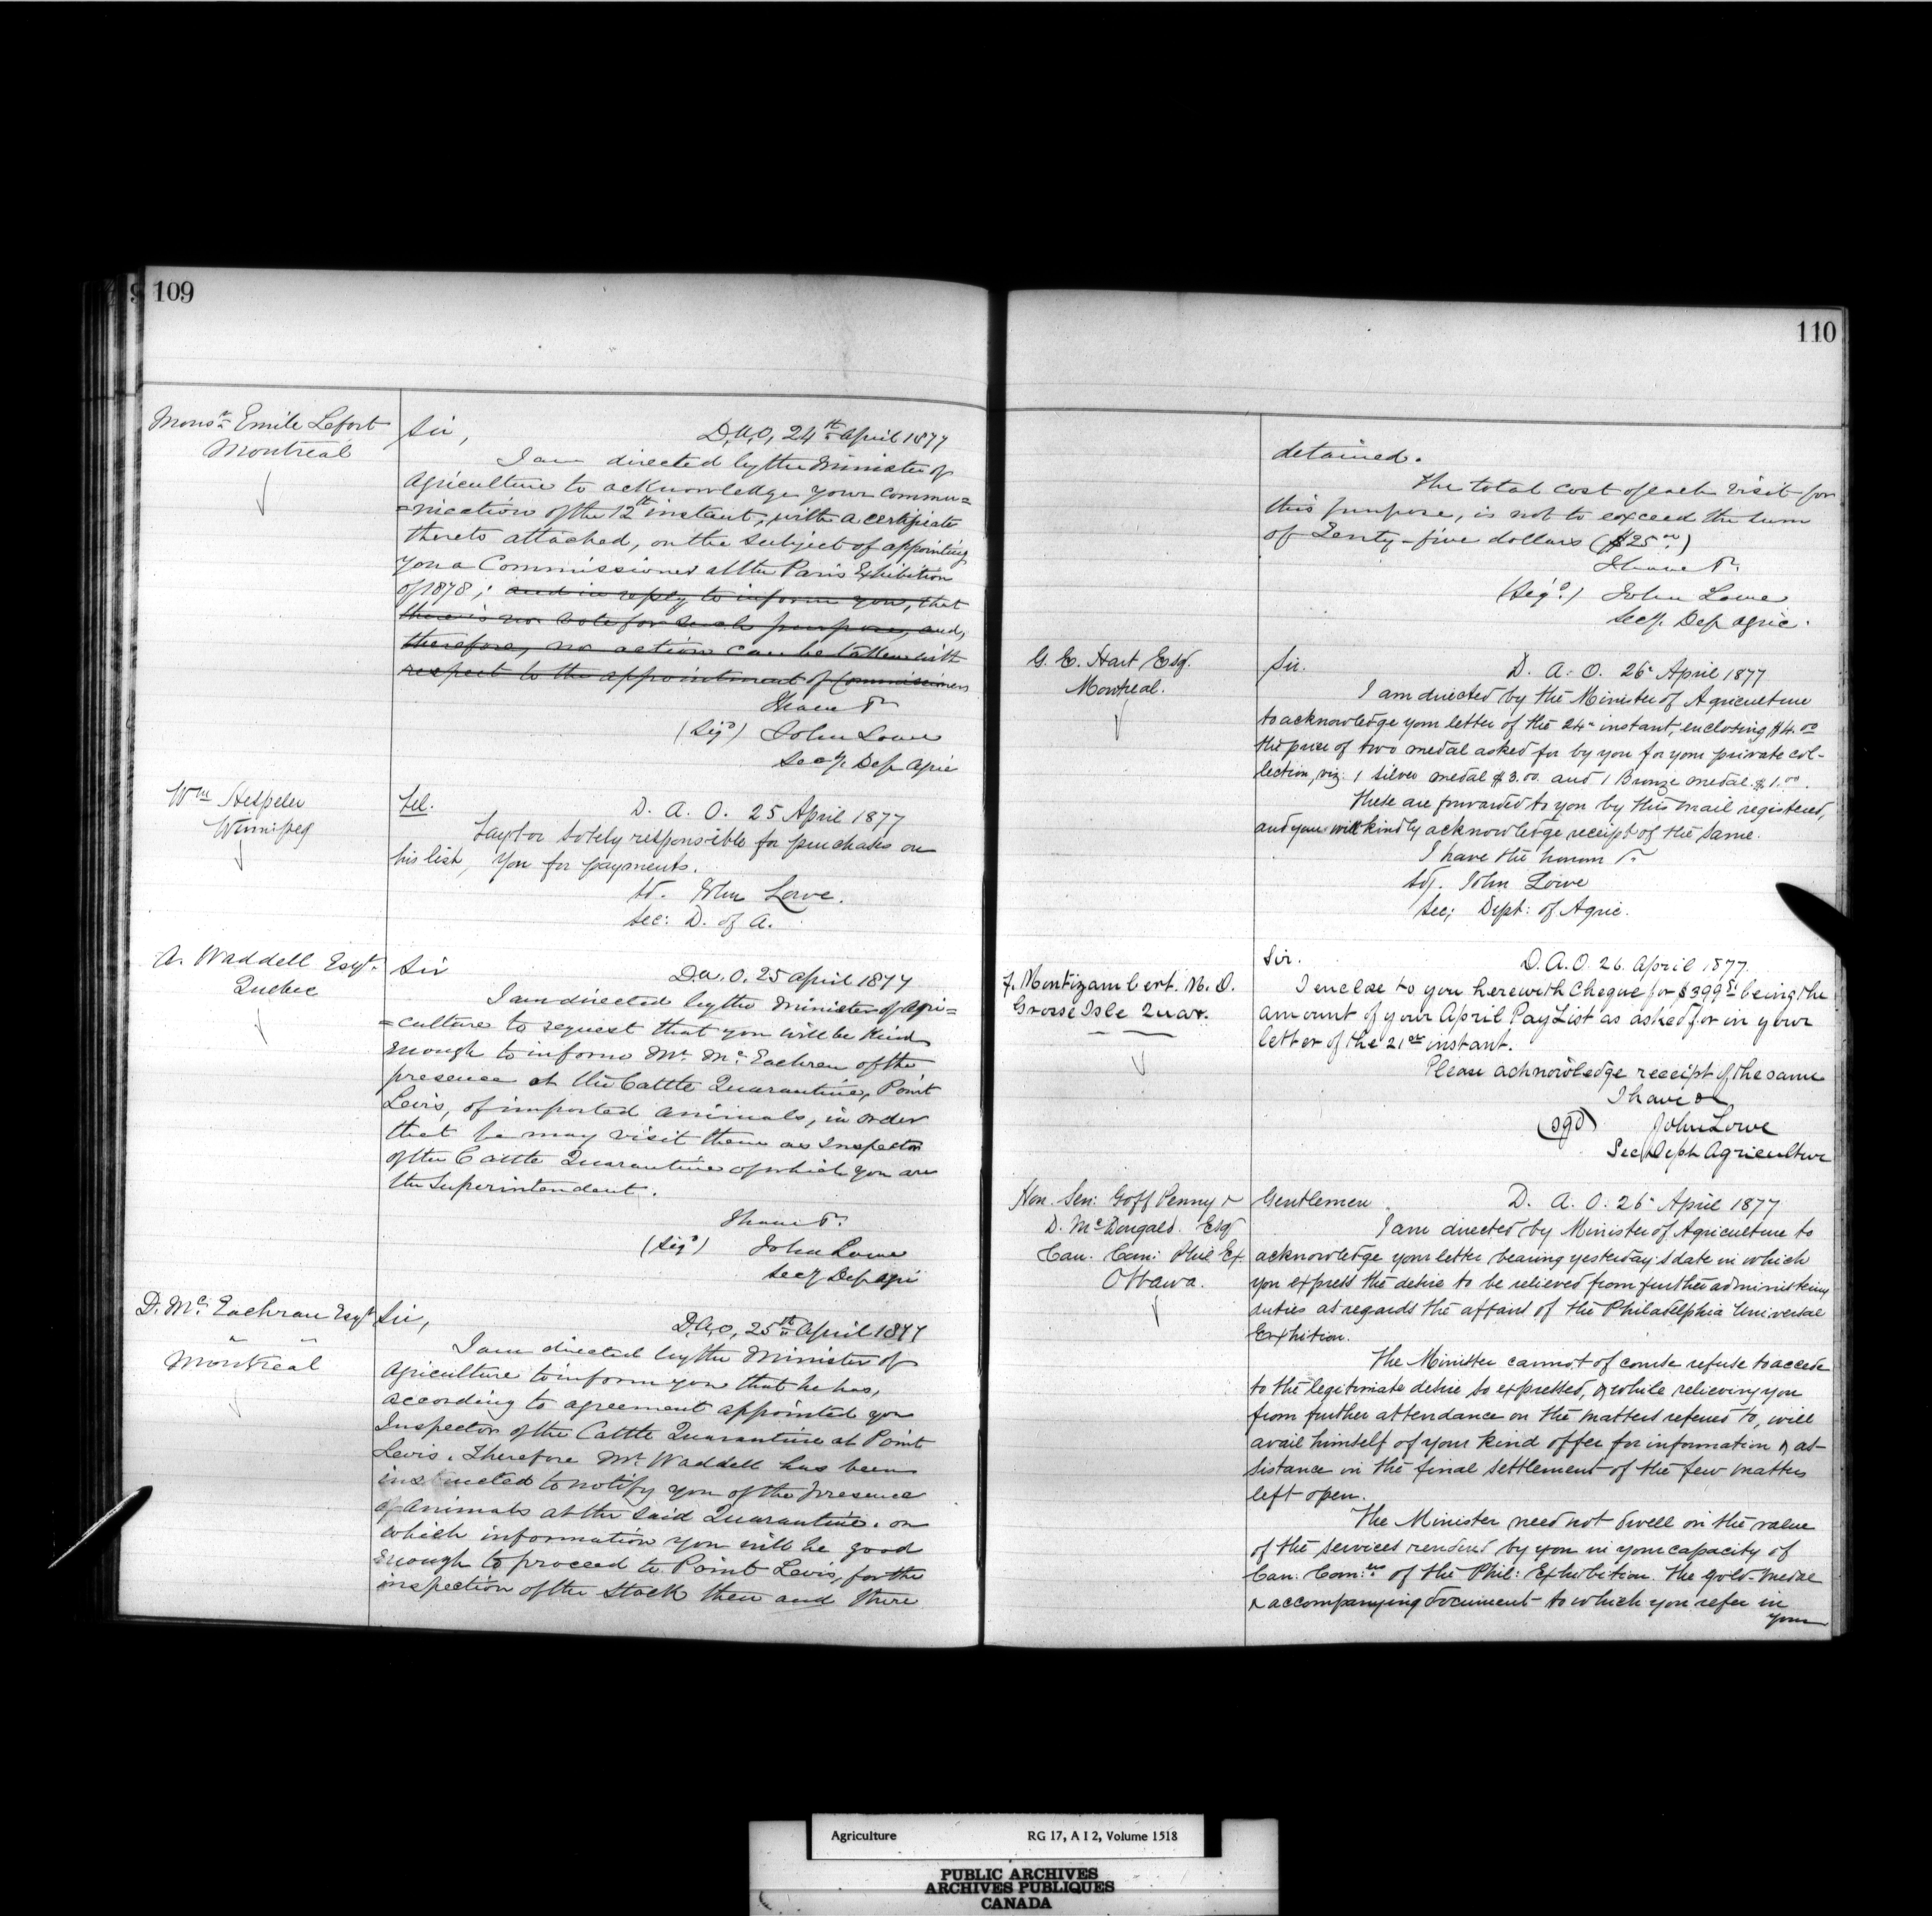 109
Monsr Emile Lefort
Montreal
Sir,
D.A.O, 24th April 1877
I am directed by the Minister of
Agriculture to acknowledge your commu=
=nication of the 12th instant, with a certificate
thereto attached, on the subject of appointing
you a Commissioner at the Paris Exhibition
of 1878; and in reply to inform you, that
there is no vote for such purpose, and,
therefore, no action can be taken with
respect to the appointment of Commissioners
I have &c
(Sigd) John Lowe
Secy. Dep Agric
Wm Hespeler
Winnipeg
Tel.
D. A. O. 25 April 1877
Taylor solely responsible for purchases on
his list, you for payments.
sd. John Lowe.
Sec: D. of A.
A. Waddell Esqr.
Quebec
Sir
D.A.O. 25 April 1877
I am directed by the Minister of Agri=
=culture to request that you will be kind
enough to inform Mr. McEachran of the
presence at the Cattle Quarantine, Point
Levis, of imported animals, in order
that he may visit them as Inspector
of the Cattle Quarantine of which you are
the Superintendent.
I have &c.
(Sigd) John Lowe
Secy Dep Agri
D. Mc. Eachran Esqr
" "
Montreal
Sir,
D.A.O, 25th April 1877
I am directed by the Minister of
Agriculture to inform you that he has,
according to agreement appointed you
Inspector of the Cattle Quarantine at Point
Levis. Therefore Mr. Waddell has been
instructed to notify you of the presence
of animals at the said Quarantine. on
which information you will be good
enough to proceed to Point Levis, for the
inspection of the Stock then and there
110
detained.
The total cost of each visit for
this purpose, is not to exceed the sum
of Tenty-five dollars ($25.00)
I have &c.
(Sigd.) John Lowe
Secy. Dep Agric.
G. E. Hart Esq.
Montreal.
Sir.
D. A. O. 26" April 1877
I am directed by the Minister of Agriculture
to acknowledge your letter of the 24" instant, enclosing $4.00
the price of two medal asked for by you for your private col-
lection, viz: 1 silver medal $3.00. and 1 Bronze medal. $1.00.
These are forwarded to you by this mail registered,
and you will kindly acknowledge receipt of the same.
I have the honor &c
sd. John Lowe
Sec; Dept: of Agric.
F. Montizambert. M.D.
Grosse Isle Quar.
Sir.
D.A.O. 26. April 1877.
I enclose to you herewith Cheque for $399 being the
amount of your April Pay List as asked for in your
letter of the 21st instant.
Please acknowledge receipt of the same
I have &c
(sgd) John Lowe
Sec Dept Agriculture
Hon. Sen: Goff Penny &
D. McDougald. Esq
Can. Com: Phil Ex.
Ottawa.
Gentlemen
D. A. O. 26" April 1877
I am directed by Minister of Agriculture to
acknowledge your letter bearing yesterday's date in which
you express the desire to be relieved from further administering
duties as regards the affairs of the Philadelphia Universal
Exhition.
The Minister cannot of course refuse to accede
to the legitimate desire so expressed, & while relieving you
from further attendance on the matters referred to, will
avail himself of your kind offer for information & as-
sistance in the final settlement of the few matters
left open.
The Minister need not dwell on the value
of the services rendered by you in your capacity of
Can: Com:rs of the Phil: Exhibition. The gold-medal
& accompanying document to which you refer in
your
Agriculture RG 17, A I 2, Volume 1518
PUBLIC ARCHIVES
ARCHIVES PUBLIQUES
CANADA